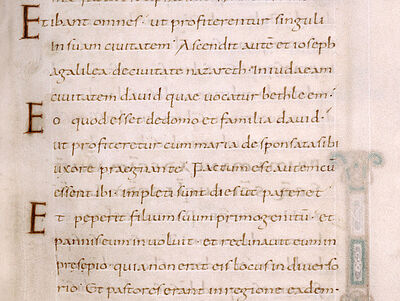 Et ibant omnes · ut profiterentur singuli
in suam civitatem · Ascendit autē et ioseph
a galilea de civitate nazareth · In iudaeam
civitatem david quae vocatur bethleem ·
Eo quod esset de domo et familia david ·
ut profiteretur cum maria desponsata sibi
uxore praegnante · Factum est autem cū
essent ibi · impleti sunt dies ut pareret
Et peperit filium suum primogenitū · et
pannis eum involuit · et reclinavit eum in
presepio · quia non erat eis locus in diverso
rio · Et pastores erant in regione eadem ·